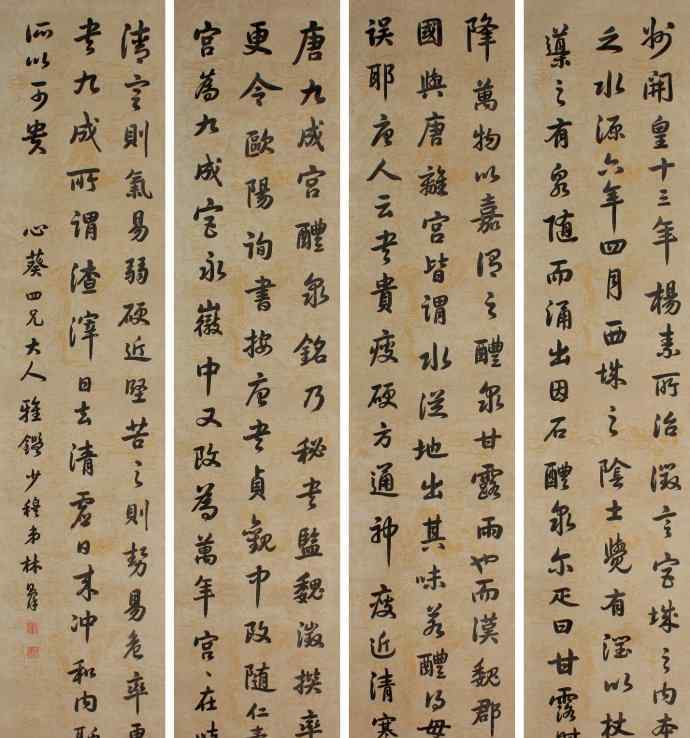 州開皇十三年楊素所治徵言宮城之內本
乏水源六年四月西城之陰土覺有潤以杖
導之有泉隨而涌出因石醴泉尒疋曰甘露時
降萬物以嘉謂之醴泉甘露雨也而漢魏郡
國與唐離宮皆謂水從地出其味若醴得毋
誤耶唐人云書貴瘦硬方通神瘦近清寒
唐九成宮醴泉銘乃秘書監魏徵撰率
更令歐陽詢書按唐書貞觀中改隨仁壽
宮為九成宮永徽中又改為萬年宮、在岐
清寒則氣易弱硬近堅苦之則勢易危率更
書九成所謂渣滓日去清虛日來冲和內
所以可貴 心葵四兄大人雅鑑 少穆弟林則徐